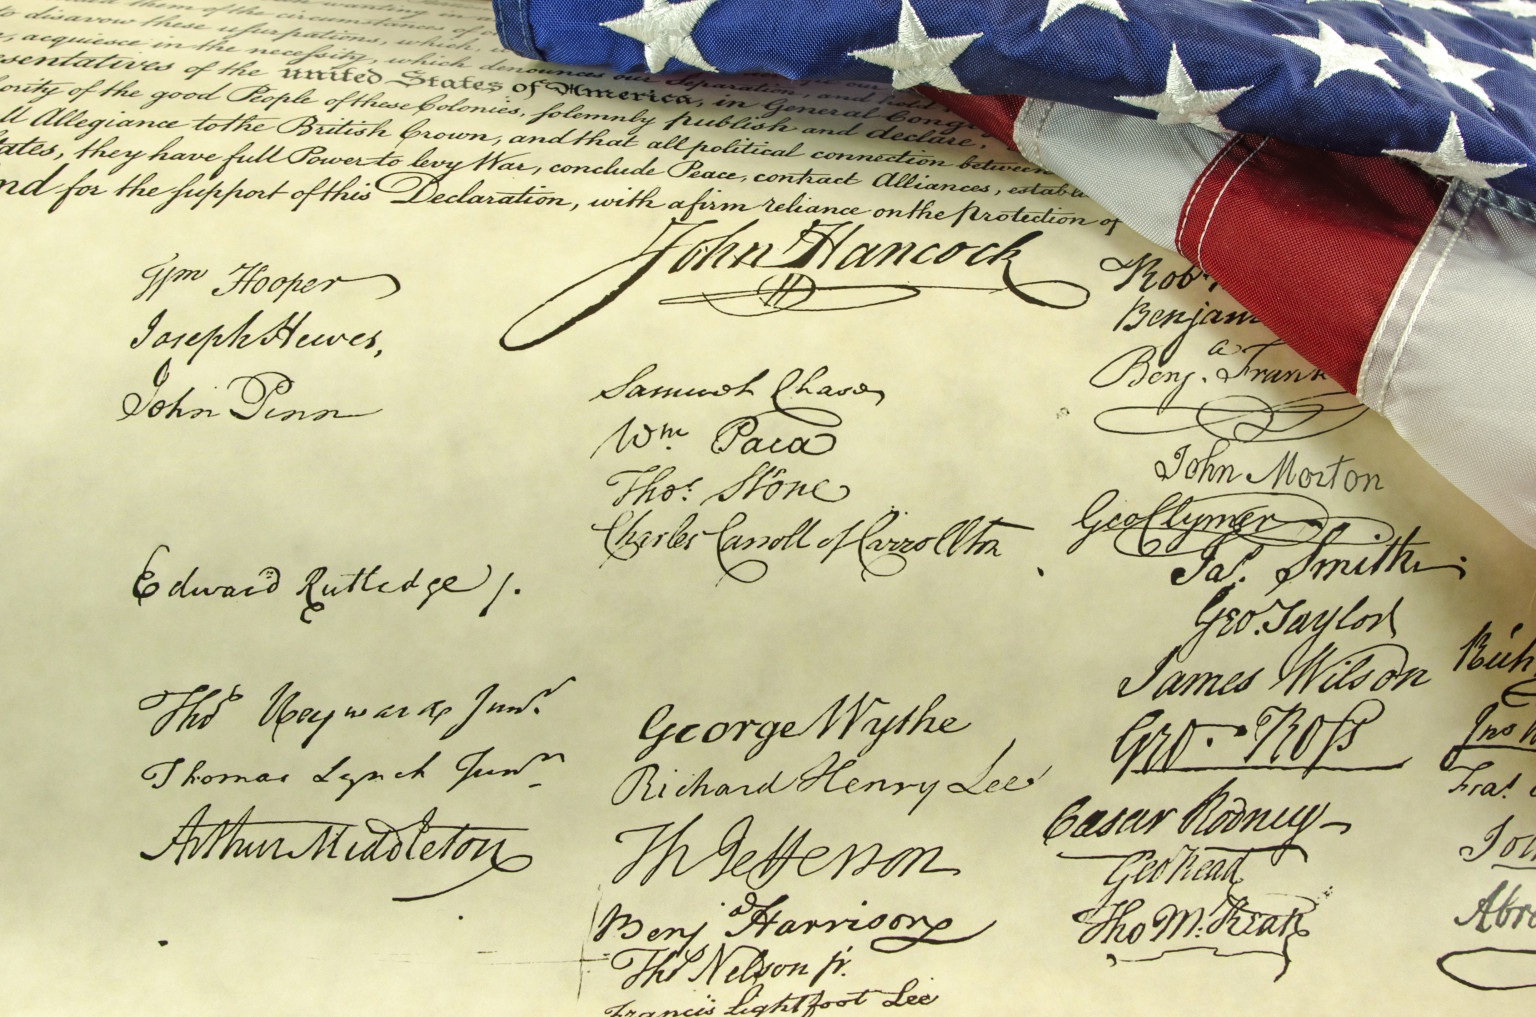 wanting in
them of the circumstances of
to disavow these usurpations, which,
acquiesce in the necessity, which denounces our Separation, and hold
sentatives of the united States of America, in General Cong
ority of the good People of these Colonies, solemnly publish and declare,
ll Allegiance to the British Crown, and that all political connection between
tates, they have full Power to levy War, conclude Peace, contract Alliances, establ
nd for the support of this Declaration, with a firm reliance on the protection of
John Hancock
Wm Hooper
Joseph Hewes,
John Penn
Edward Rutledge /.
Thos Heyward Junr.
Thomas Lynch Junr.
Arthur Middleton
Samuel Chase
Wm. Paca
Thos. Stone
Charles Carroll of Carrollton
George Wythe
Richard Henry Lee
Th Jefferson
Benja Harrison
Thos Nelson jr.
Francis Lightfoot Lee
Rob
Benjam
Benja. Frank
John Morton
Geo Clymer
Jas. Smith.
Geo. Taylor
James Wilson
Geo. Ross
Caesar Rodney
Geo Read
Tho M:Kean
Rich
Jns
Fras.
Joh
Abra